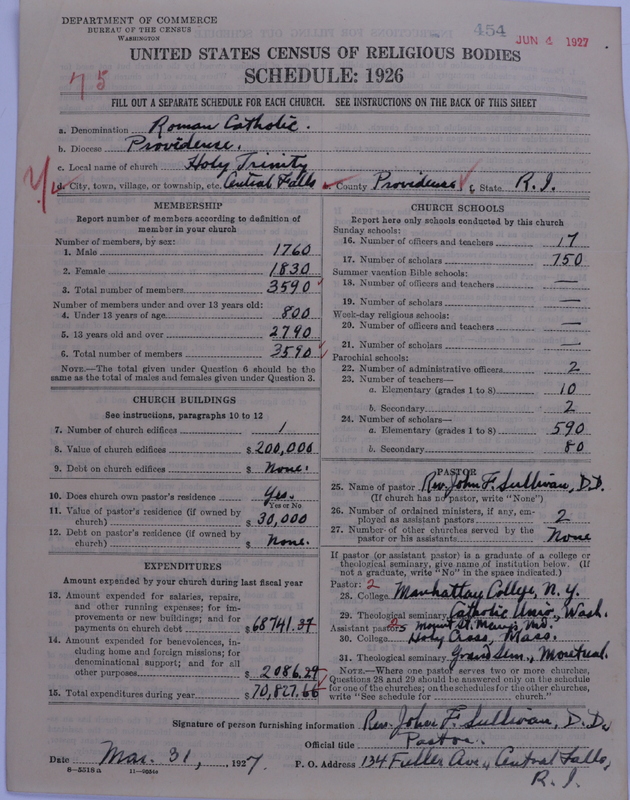 DEPARTMENT OF COMMERCE
BUREAU OF THE CENSUS
WASHINGTON
454
JUN 4 1927
UNITED STATES CENSUS OF RELIGIOUS BODIES
SCHEDULE: 1926
75
FILL OUT A SEPARATE SCHEDULE FOR EACH CHURCH. SEE INSTRUCTIONS ON THE BACK OF THIS SHEET
a. Denomination Roman Catholic.
b. Diocese Providence.
c. Local name of church Holy Trinity
d. City, town, village, or township, etc. Central Falls County Providence State R.I.
MEMBERSHIP
Report number of members according to definition of
member in your church
Number of members, by sex:
1. Male 1760
2. Female 1830
3. Total number of members 3590
Number of members under and over 13 years old:
4. Under 13 years of age 800
5. 13 years old and over 2790
6. Total number of members 3590
NOTE.—The total given under Question 6 should be
same as the total of males and females given under Question 3.
CHURCH BUILDINGS
See instructions, paragraphs 10 to 12
7. Number of church edifices 1
8. Value of church edifices $ 200,000
9. Debt on church edifices $ None.
10. Does church own pastor's residence Yes.
Yes or No
11. Value of pastor's residence (if owned by
church) $ 30,000
12. Debt on pastor's residence (if owned by
church) $ None.
EXPENDITURES
Amount expended by your church during last fiscal year
13. Amount expended for salaries, repairs,
and other running expenses; for im-
provements or new buildings; and for
payments on church debt $ 68741.37
14. Amount expended for benevolences, in-
cluding home and foreign missions; for
denominational support; and for all
other purposes $ 2086.29
15. Total expenditures during year $ 70,827.66
CHURCH SCHOOLS
Report here only schools conducted by this church
Sunday schools:
16. Number of officers and teachers 17
17. Number of scholars 750
Summer vacation Bible schools:
18. Number of officers and teachers —
19. Number of scholars —
Week-day religious schools:
20. Number of officers and teachers —
21. Number of scholars —
Parochial schools:
22. Number of administrative officers 2
23. Number of teachers—
a. Elementary (grades 1 to 8) 10
b. Secondary 2
24. Number of scholars—
a. Elementary (grades 1 to 8) 590
b. Secondary 80
PASTOR
25. Name of pastor Rev. John F. Sullivan, D.D.
(If church has no pastor, write "None")
26. Number of ordained ministers, if any, em-
ployed as assistant pastors 2
27. Number of other churches served by the
pastor or his assistants None
If pastor (or assistant pastor) is a graduate of a college or
theological seminary, give name of institution below. (If
not a graduate, write "No" in the space indicated.)
Pastor: 2
28. College Manhattan College, N.Y.
29. Theological seminary Catholic Univ., Wash.
Assistant pastor: Mount St. Mary's Md.
30. College Holy Cross, Mass.
31. Theological seminary Grand Sem., Montreal.
NOTE.—Where one pastor serves two or more churches,
Questions 28 and 29 should be answered only on the schedule
for one of the churches; on the schedules for the other churches,
write "See schedule for church."
Signature of person furnishing information Rev. John F. Sullivan, D.D.
Official title Pastor.
Date Mar. 31, 1927 P. O. Address 134 Fuller Ave., Central Falls,
R.I.
8—5518a 11—9954a